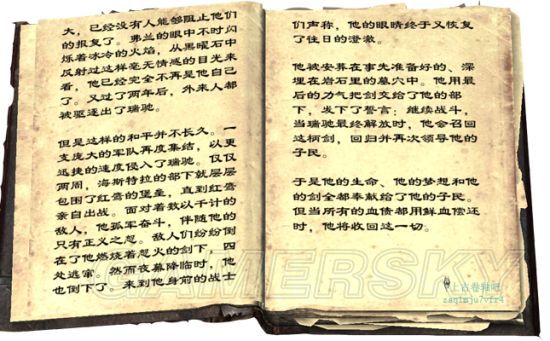 大，已经没有人能够阻止他们
的报复了。弗兰的眼中不时闪
烁着冰冷的火焰，从黑曜石中
反射过这样毫无情感的目光来
看，他已经完全不再是他自己
了。又过了两年后，外来人都
被驱逐出了瑞驰。
但是这样的和平并不长久。一
支庞大的军队再度集结，以更
迅捷的速度侵入了瑞驰。仅仅
两周，海斯特拉的部下就层层
包围了红鹰的堡垒，直到红鹰
亲自出战。面对着数以千计的
敌人，他孤军奋斗，伴随他的
只有正义之怒。敌人们纷纷倒
在了他燃烧着怒火的剑下，四
处逃窜。然而夜幕降临时，他
也倒下了。来到他身前的战士
们声称，他的眼睛终于又恢复
了往日的澄澈。
他被安葬在事先准备好的、深
埋在岩石里的墓穴中。他用最
后的力气把剑交给了他的部
下，发下了誓言：继续战斗，
当瑞驰最终解放时，他会召回
这柄剑，回归并再次领导他的
子民。
于是他的生命、他的梦想和他
的剑全都奉献给了他的子民。
但当所有的血债都用鲜血偿还
时，他将收回这一切。
GAMERSKY
上古卷轴吧
zaqImju7vfr4